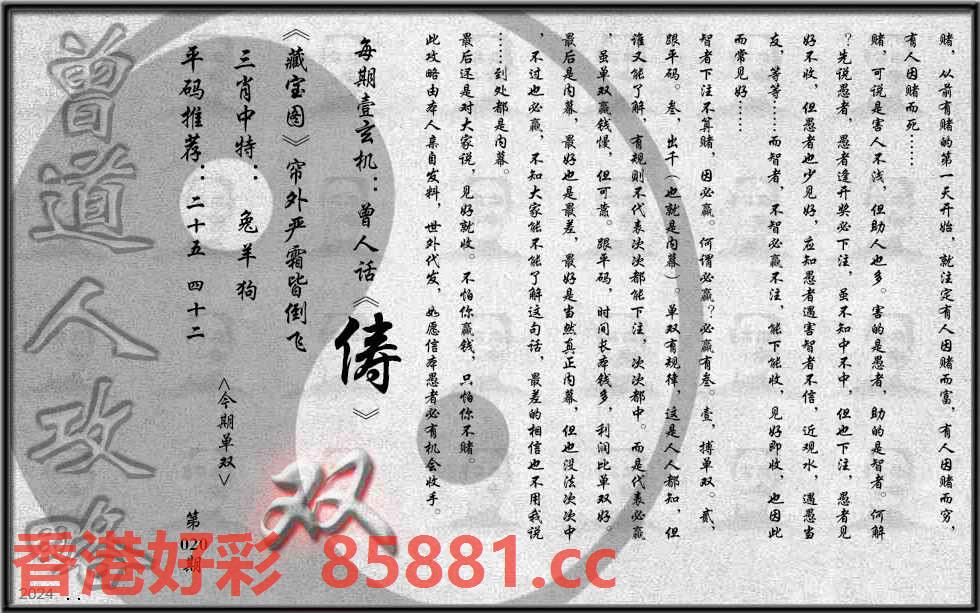 赌，从前有赌的第一天开始，就注定有人因赌而富，有人因赌而穷，
有人因赌而死……
赌，可说是害人不浅，但助人也多。害的是愚者，助的是智者。何解
？先说愚者，愚者逢开奖必下注，虽不知中不中，但也下注，愚者见
好不收，但愚者也少见好，应知愚者遇害智者不信，近观水，遇愚当
友，等等……而智者，不智必赢不注，能下能收，见好即收，也因此
而常见好……
智者下注不算赌，因必赢。何谓必赢？必赢有叁。壹，搏单双。贰，
跟平码。叁，出千（也就是内幕）。单双有规律，这是人人都知，但
谁又能了解，有规则不代表次次都能下注，次次都中。而是代表必赢
，虽单双赢钱慢，但可靠。跟平码，时间长本钱多，利润比单双好。
最后是内幕，最好也是最差，最好是当然真正内幕，但也没法次次中
，不过也必赢，不知大家能不能了解这句话，最差的相信也不用我说
……到处都是内幕。
最后还是对大家说，见好就收。不怕你赢钱，只怕你不赌。
此攻略由本人亲自发料，世外代发，如愿信本愚者必有机会收手。
每期壹玄机：曾人话《俦》
《藏宝图》帘外严霜皆倒飞
三肖中特：兔羊狗
平码推荐：二十五 四十二
<今期单双>
双
第
020
期
曾道人攻略
香港好彩 85881.cc
2024